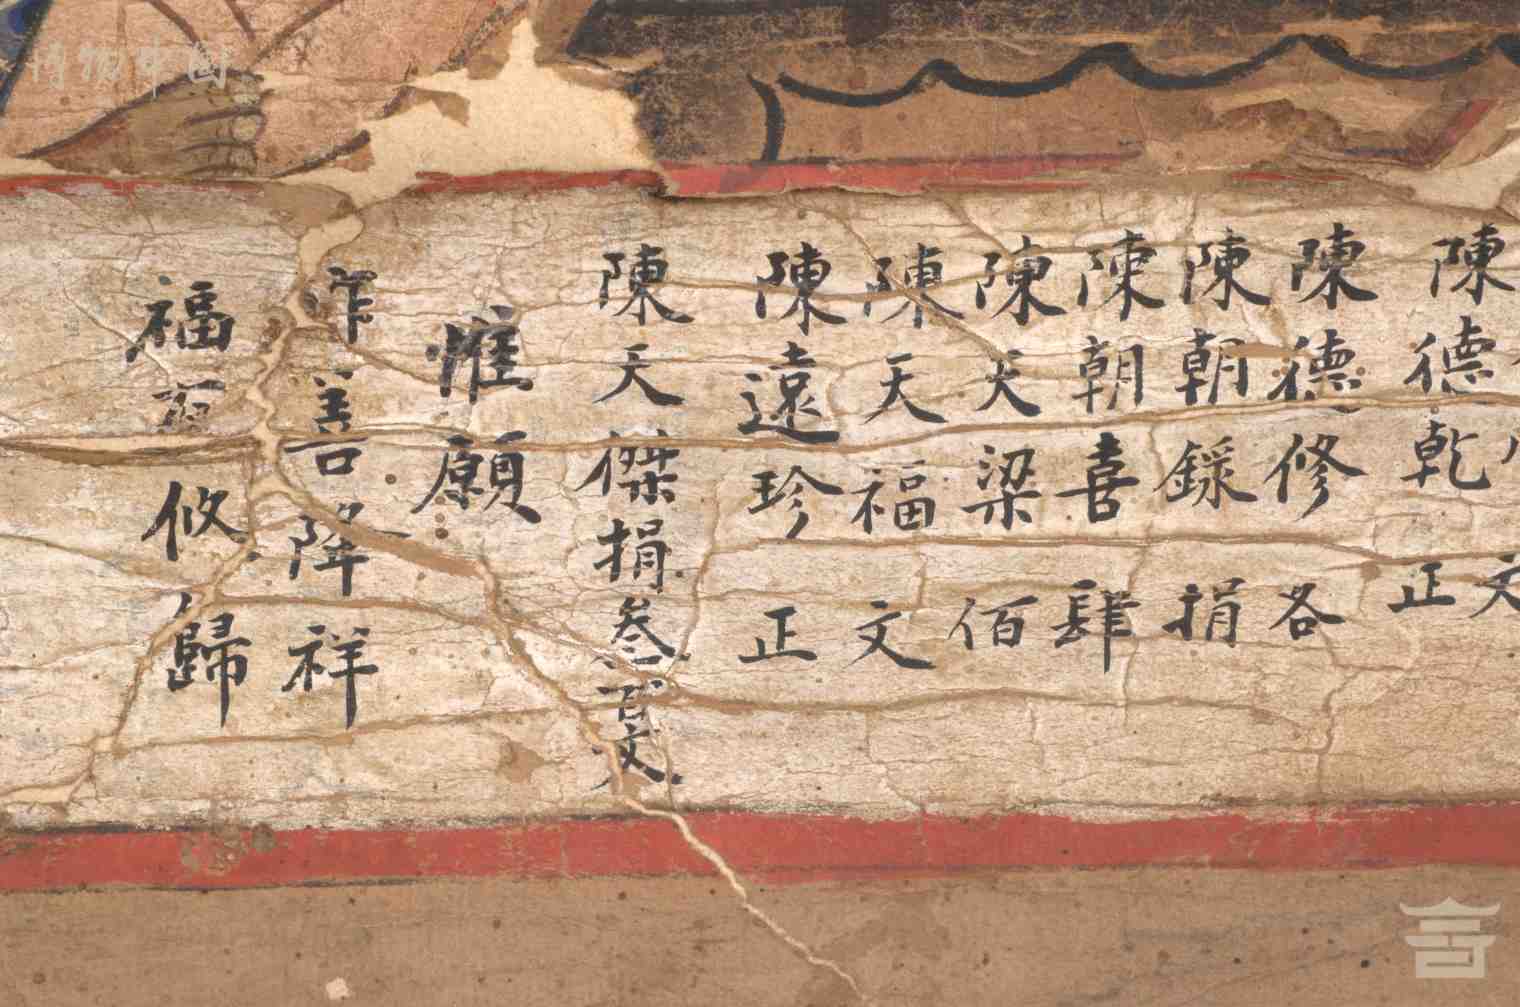 陳德乾 正
陳德修 各
陳朝錄 捐
陳朝喜 肆
陳天梁 佰
陳天福 文
陳遠珍 正
陳天傑捐叁百文
惟願
作善降祥
福有攸歸
博物中國